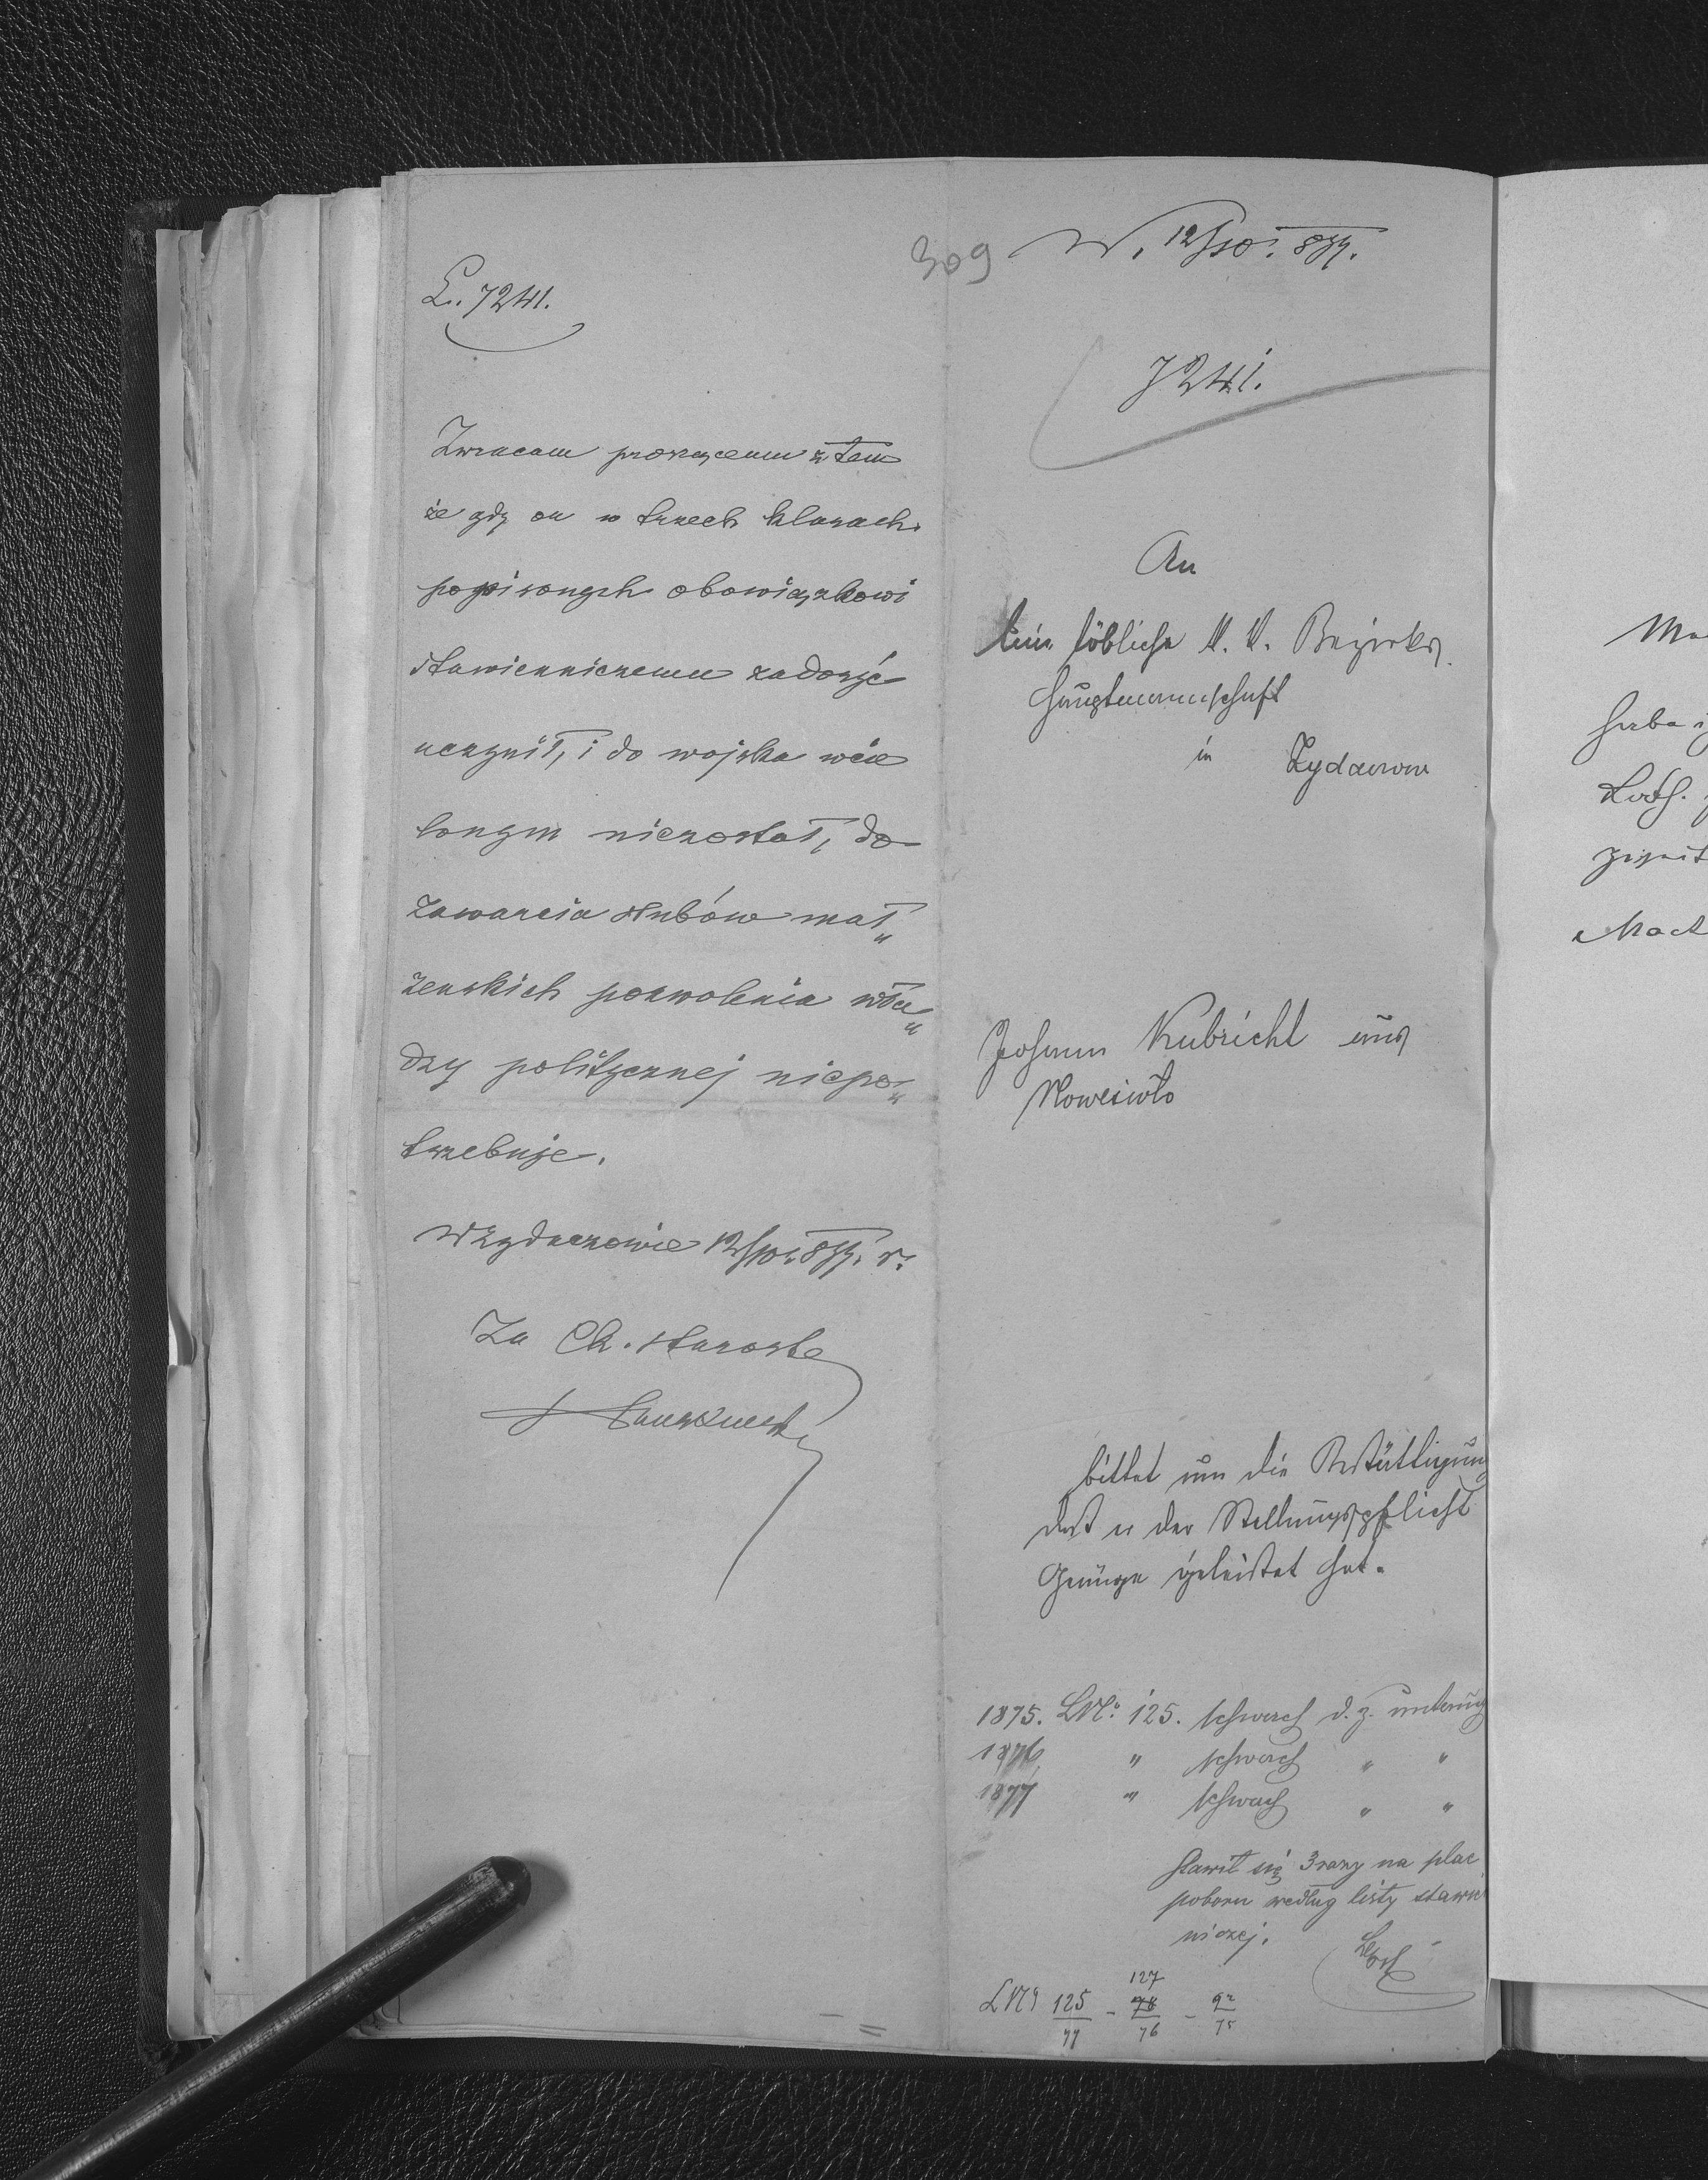 L. 7241.
Zwracam proszącemu z tem
że gdy on w trzech klasach
popisowych obowiązkowi
stawienniczemu zadosyć
uczynił, i do wojska wcie
lonym niezostał, do
zawarcia ślubów mał„
żenskich pozwolenia wła„
dzy politycznej niepo„
trzebuje.
W Żydaczowie 12/10 877. r.
Za Ck. starostę
309 W. 12/10. 877.
7241.
An
Eine löbliche k. k. Bezirks
Hauptmannschaft
in Zydaczow
Johann Kubricht aus
Nowesioło
bittet um die Bestättigung
dass er der Stellungspflicht
Genüge geleistet hat.
1875. LNo. 125. schwach d. z. untaug
1876 " schwach " "
1877 " schwach " "
Stawił się 3 razy na plac
poboru według listy stawie
niczej.
127
LNo 125 - 78 - 92
77 76 75